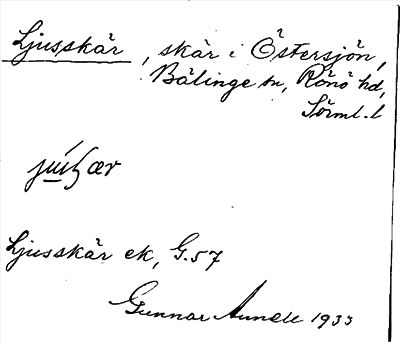 Ljusskär, skär i Östersjön,
Bälinge sn, Rönö hd,
Sörml. l
Ljusskär ek, G.57
Gunnar 1933